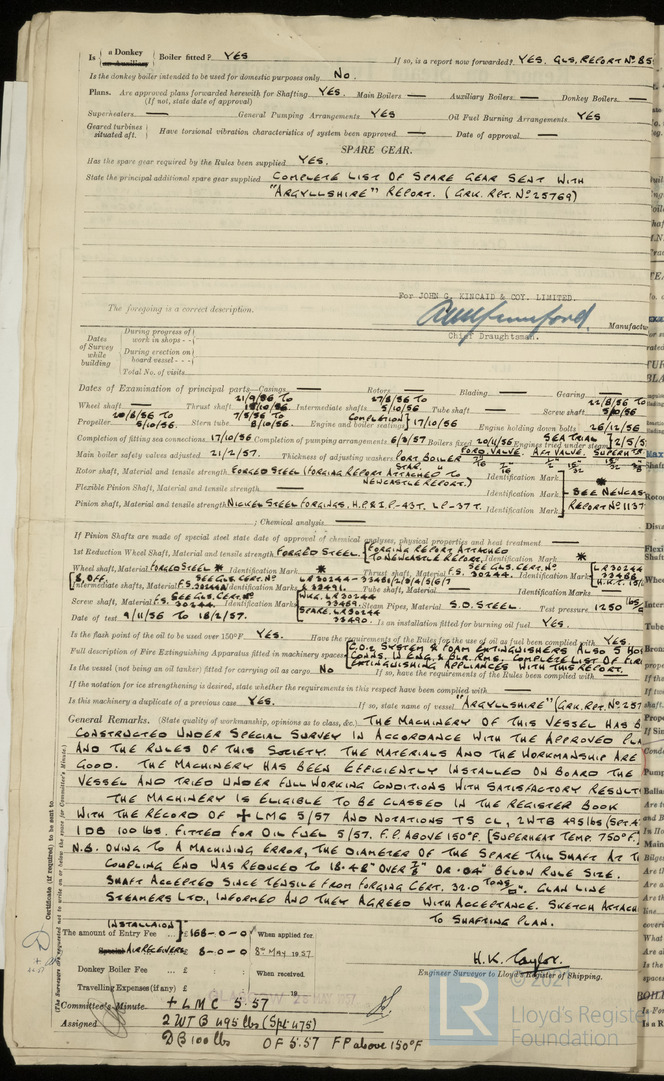 Is a Donkey or Auxiliary Boiler fitted? YES If so, is a report now forwarded? YES, GLS. REPORT No 85
Is the donkey boiler intended to be used for domestic purposes only No.
Plans. Are approved plans forwarded herewith for Shafting YES. Main Boilers — Auxiliary Boilers — Donkey Boilers —
(If not, state date of approval)
Superheaters — General Pumping Arrangements YES Oil Fuel Burning Arrangements YES
Geared turbines situated aft. Have torsional vibration characteristics of system been approved — Date of approval —
SPARE GEAR.
Has the spare gear required by the Rules been supplied YES.
State the principal additional spare gear supplied COMPLETE LIST OF SPARE GEAR SENT WITH
"ARGYLLSHIRE" REPORT. (GRK. RPT. No 25769)
For JOHN G. KINCAID & COY. LIMITED.
The foregoing is a correct description. Manufactu
Chief Draughtsman.
Dates of Survey while building
During progress of work in shops - -
During erection on board vessel - - -
Total No. of visits
Dates of Examination of principal parts—Casings — Rotors — Blading — Gearing 22/8/56 TO
Wheel shaft — Thrust shaft 21/9/56 TO Intermediate shafts 27/8/56 TO 5/10/56 Tube shaft — Screw shaft
Propeller 20/8/56 TO 5/10/56. Stern tube 7/5/56 TO 8/10/56. Engine and boiler seatings COMPLETION 17/10/56 Engine holding down bolts 26/12/56
Completion of fitting sea connections 17/10/56 Completion of pumping arrangements 6/2/57 Boilers fixed 20/11/56 Engines tried under steam SEA TRIAL 2/5/5
Main boiler safety valves adjusted 21/2/57. Thickness of adjusting washers PORT BOILER FORD. VALVE. AFT VALVE. SUPERHTR
STAR. "
Rotor shaft, Material and tensile strength FORGED STEEL (FORGING REPORT ATTACHED TO NEWCASTLE REPORT.) Identification Mark
Flexible Pinion Shaft, Material and tensile strength — Identification Mark SEE NEWCAS
Pinion shaft, Material and tensile strength NICKEL STEEL FORGINGS. H.P & I.P - 43T. LP - 37T. Identification Mark REPORT No 1137
; Chemical analysis —
If Pinion Shafts are made of special steel state date of approval of chemical analyses, physical properties and heat treatment —
1st Reduction Wheel Shaft, Material and tensile strength FORGED STEEL. FORGING REPORT ATTACHED TO NEWCASTLE REPORT. Identification Mark *
Wheel shaft, Material FORGED STEEL * Identification Mark * Thrust shaft, Material F.S. SEE GLS. CERT. No 30244. Identification Mark LR 30244
Intermediate shafts, Material F.S. 30244 8, OFF. SEE GLS. CERT. No Identification Marks Tube shaft, Material — Identification Mark —
Screw shaft, Material F.S. SEE GLS. CERT. No 30244. Identification Marks WKG. LR 30244 33469. SPARE. LR 30244 33490. Steam Pipes, Material S.D. STEEL. Test pressure 1250 lbs
Date of test 9/11/56 TO 18/2/57. Is an installation fitted for burning oil fuel YES.
Is the flash point of the oil to be used over 150°F. YES. Have the requirements of the Rules for the use of oil as fuel been complied with YES.
Full description of Fire Extinguishing Apparatus fitted in machinery spaces C.O.2 SYSTEM & FOAM EXTINGUISHERS ALSO 5 HOS
CONNS. IN ENG. & BLR. RMS. COMPLETE LIST OF FIRE
EXTINGUISHING APPLIANCES WITH THIS REPORT.
Is the vessel (not being an oil tanker) fitted for carrying oil as cargo. No If so, have the requirements of the Rules been complied with —
If the notation for ice strengthening is desired, state whether the requirements in this respect have been complied with —
Is this machinery a duplicate of a previous case YES. If so, state name of vessel "ARGYLLSHIRE" (GRK. RPT. No. 257
General Remarks. (State quality of workmanship, opinions as to class, &c.) THE MACHINERY OF THIS VESSEL HAS B
CONSTRUCTED UNDER SPECIAL SURVEY IN ACCORDANCE WITH THE APPROVED PLA
AND THE RULES OF THIS SOCIETY. THE MATERIALS AND THE WORKMANSHIP ARE
GOOD. THE MACHINERY HAS BEEN EFFICIENTLY INSTALLED ON BOARD THE
VESSEL AND TRIED UNDER FULL WORKING CONDITIONS WITH SATISFACTORY RESULT
THE MACHINERY IS ELIGIBLE TO BE CLASSED IN THE REGISTER BOOK
WITH THE RECORD OF +LMC 5/57 AND NOTATIONS TS CL, 2WTB 495 lbs (SPT. 4
1 DB 100 lbs. FITTED FOR OIL FUEL 5/57. F.P. ABOVE 150°F. [SUPERHEAT TEMP. 750°F.]
N.B. OWING TO A MACHINING ERROR, THE DIAMETER OF THE SPARE TAIL SHAFT AT T
COUPLING END WAS REDUCED TO 18.48" OVER 7/8" OR .04" BELOW RULE SIZE.
SHAFT ACCEPTED SINCE TENSILE FROM FORGING CERT. 32.0 TONS/□". CLAN LINE
STEAMERS LTD., INFORMED AND THEY AGREED WITH ACCEPTANCE. SKETCH ATTACH
TO SHAFTING PLAN.
Certificate (if required) to be sent to
(The Surveyors are requested not to write on or below the space for Committee's Minute.)
(INSTALLATION)
The amount of Entry Fee .. £168-0-0 When applied for.
Special AIR RECEIVERS 8-0-0 8th MAY 1957
Donkey Boiler Fee £ : : When received.
Travelling Expenses (if any) £ : : 19
H.K. Taylor.
Engineer Surveyor to Lloyd's Register of Shipping.
Committee's Minute + LMC 5.57
Assigned 2 WTB 495 lbs (Spt 475)
DB 100 lbs OF 5.57 FP above 150°F
© 2021
LR
Lloyd's Registe
Foundation